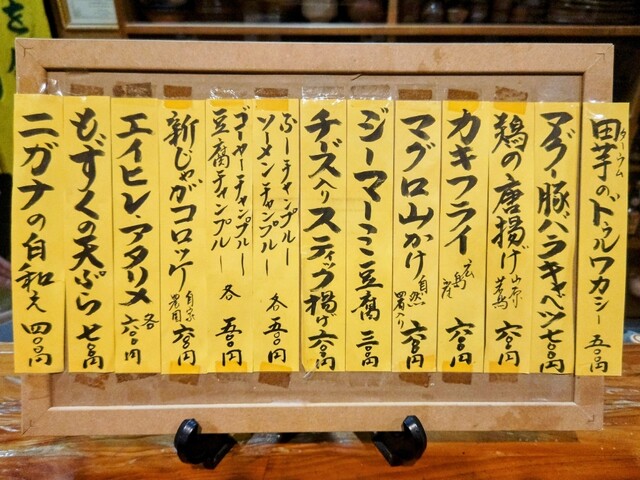 田芋のドゥルワカシー 五〇〇円
ターウム
アグー豚バラキャベツ 七〇〇円
鶏の唐揚げ 六〇〇円
カキフライ 広島産 六〇〇円
マグロ山かけ 自然薯入り 六〇〇円
ジーマーミ豆腐 三〇〇円
チーズ入りスティック揚げ 六〇〇円
ふーチャンプルー
ソーメンチャンプルー 各五〇〇円
ゴーヤーチャンプルー
豆腐チャンプルー 各 五〇〇円
新じゃがコロッケ 自家農園 六〇〇円
エイヒレ・アタリメ 各六〇〇円
もずくの天ぷら 七〇〇円
ニガナの白和え 四〇〇円